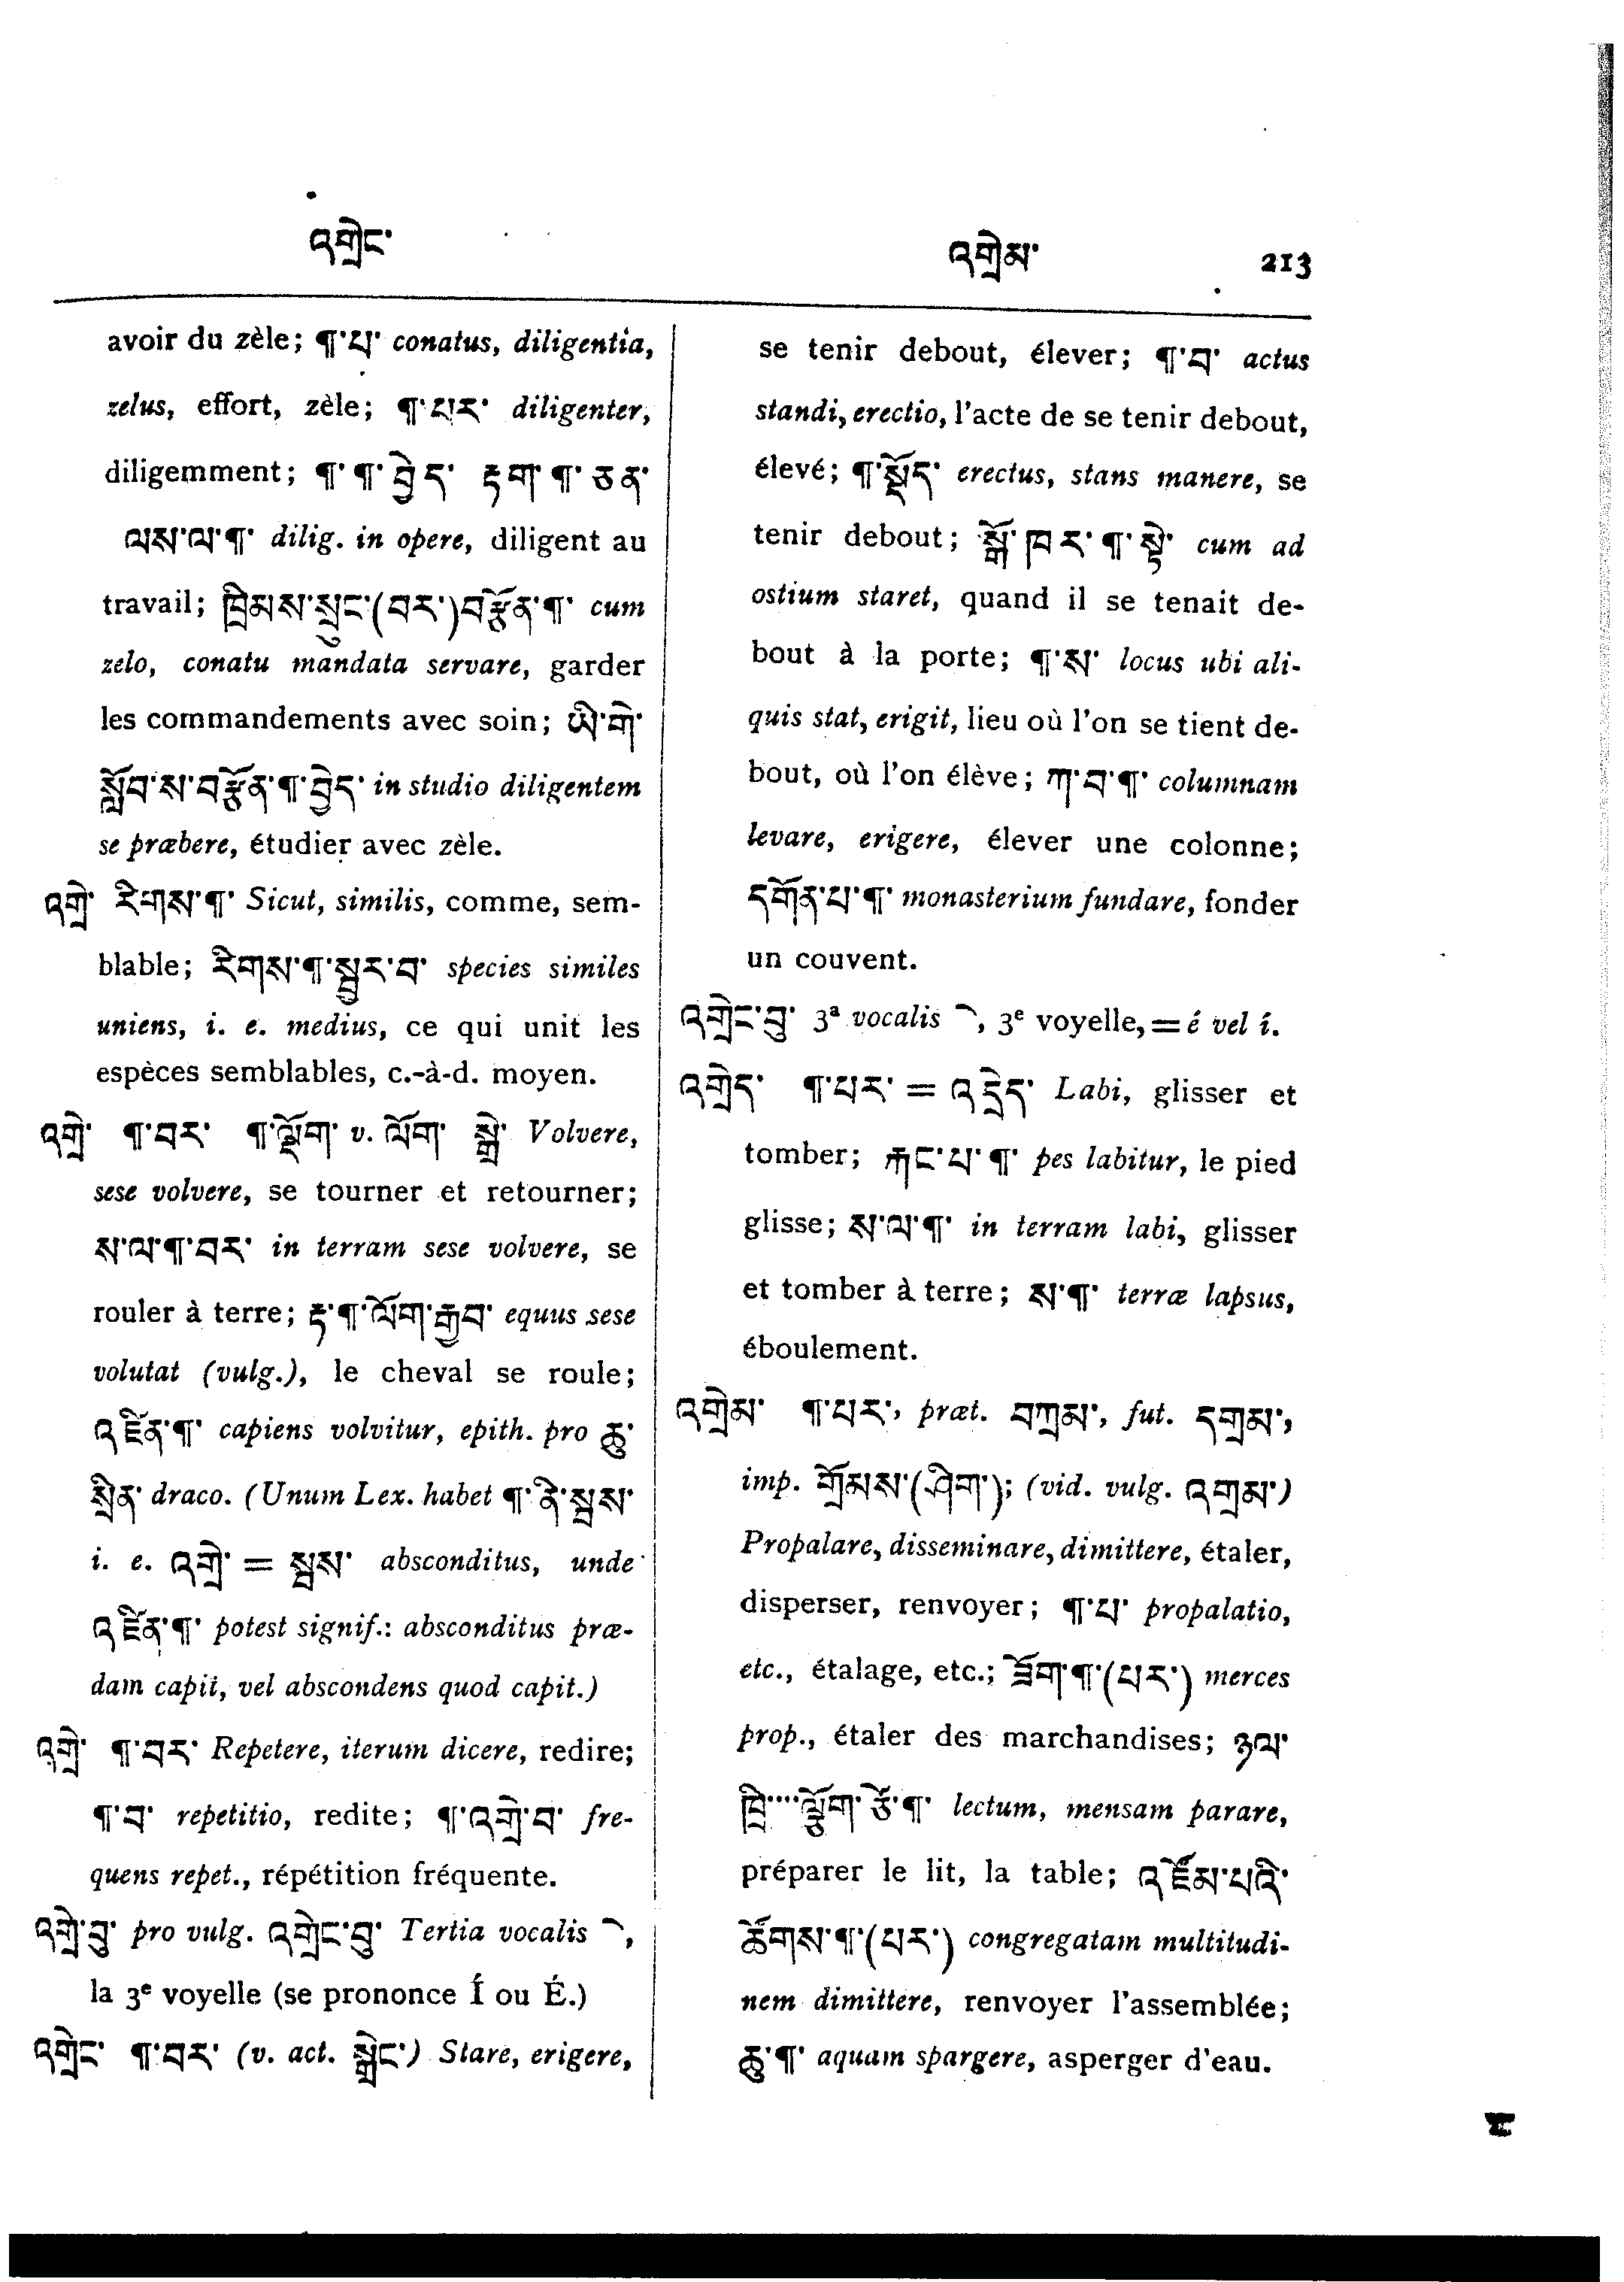 འགྲེང་
འགྲེམ་ 213
avoir du zèle; ¶་པ་ conatus, diligentia,
zelus, effort, zèle; ¶་པར་ diligenter,
diligemment; ¶་¶་བྱེད་ རྟག་¶་ཅན་
ལས་ལ་¶་ dilig. in opere, diligent au
travail; ཁྲིམས་སྲུང་(བར་)བརྩོན་¶་ cum
zelo, conatu mandata servare, garder
les commandements avec soin; ཡི་གེ་
སློབ་ས་བརྩོན་¶་བྱེད་ in studio diligentem
se præbere, étudier avec zèle.
འགྲེ་ རིགས་¶་ Sicut, similis, comme, sem-
blable; རིགས་¶་སྦྱར་བ་ species similes
uniens, i. e. medius, ce qui unit les
espèces semblables, c.-à-d. moyen.
འགྲེ་ ¶་བར་ ¶་ལྡོག་ v. ལོག་ སྒྲེ་ Volvere,
sese volvere, se tourner et retourner;
ས་ལ་¶་བར་ in terram sese volvere, se
rouler à terre; རྟ་¶་ལོག་རྒྱབ་ equus sese
volutat (vulg.), le cheval se roule;
འཛིན་¶་ capiens volvitur, epith. pro ཆུ་
སྲིན་ draco. (Unum Lex. habet ¶་ནི་སྦས་
i. e. འགྲེ་ = སྦས་ absconditus, unde
འཛིན་¶་ potest signif.: absconditus præ-
dam capit, vel abscondens quod capit.)
འགྲེ་ ¶་བར་ Repetere, iterum dicere, redire;
¶་བ་ repetitio, redite; ¶་འགྲེ་བ་ fre-
quens repet., répétition fréquente.
འགྲེ་བུ་ pro vulg. འགྲེང་བུ་ Tertia vocalis ེ,
la 3e voyelle (se prononce Í ou É.)
འགྲེང་ ¶་བར་ (v. act. སྒྲེང་) Stare, erigere,
se tenir debout, élever; ¶་བ་ actus
standi, erectio, l'acte de se tenir debout,
élevé; ¶་སྡོད་ erectus, stans manere, se
tenir debout; སྒོ་ཁར་¶་སྟེ་ cum ad
ostium staret, quand il se tenait de-
bout à la porte; ¶་ས་ locus ubi ali-
quis stat, erigit, lieu où l'on se tient de-
bout, où l'on élève; ཀ་བ་¶་ columnam
levare, erigere, élever une colonne;
དགོན་པ་¶་ monasterium fundare, fonder
un couvent.
འགྲེང་བུ་ 3a vocalis ེ, 3e voyelle, = é vel í.
འགྲེད་ ¶་པར་ = འདྲེད་ Labi, glisser et
tomber; རྐང་པ་¶་ pes labitur, le pied
glisse; ས་ལ་¶་ in terram labi, glisser
et tomber à terre; ས་¶་ terræ lapsus,
éboulement.
འགྲེམ་ ¶་པར་, præt. བཀྲམ་, fut. དགྲམ་,
imp. གྲོམས་(ཤིག་); (vid. vulg. འགྲམ་)
Propalare, disseminare, dimittere, étaler,
disperser, renvoyer; ¶་པ་ propalatio,
etc., étalage, etc.; ཟོག་¶་(པར་) merces
prop., étaler des marchandises; ཉལ་
ཁྲི་···ལྕོག་ཙོ་¶་ lectum, mensam parare,
préparer le lit, la table; འཛོམ་པའི་
ཚོགས་¶་(པར་) congregatam multitudi-
nem dimittere, renvoyer l'assemblée;
ཆུ་¶་ aquam spargere, asperger d'eau.